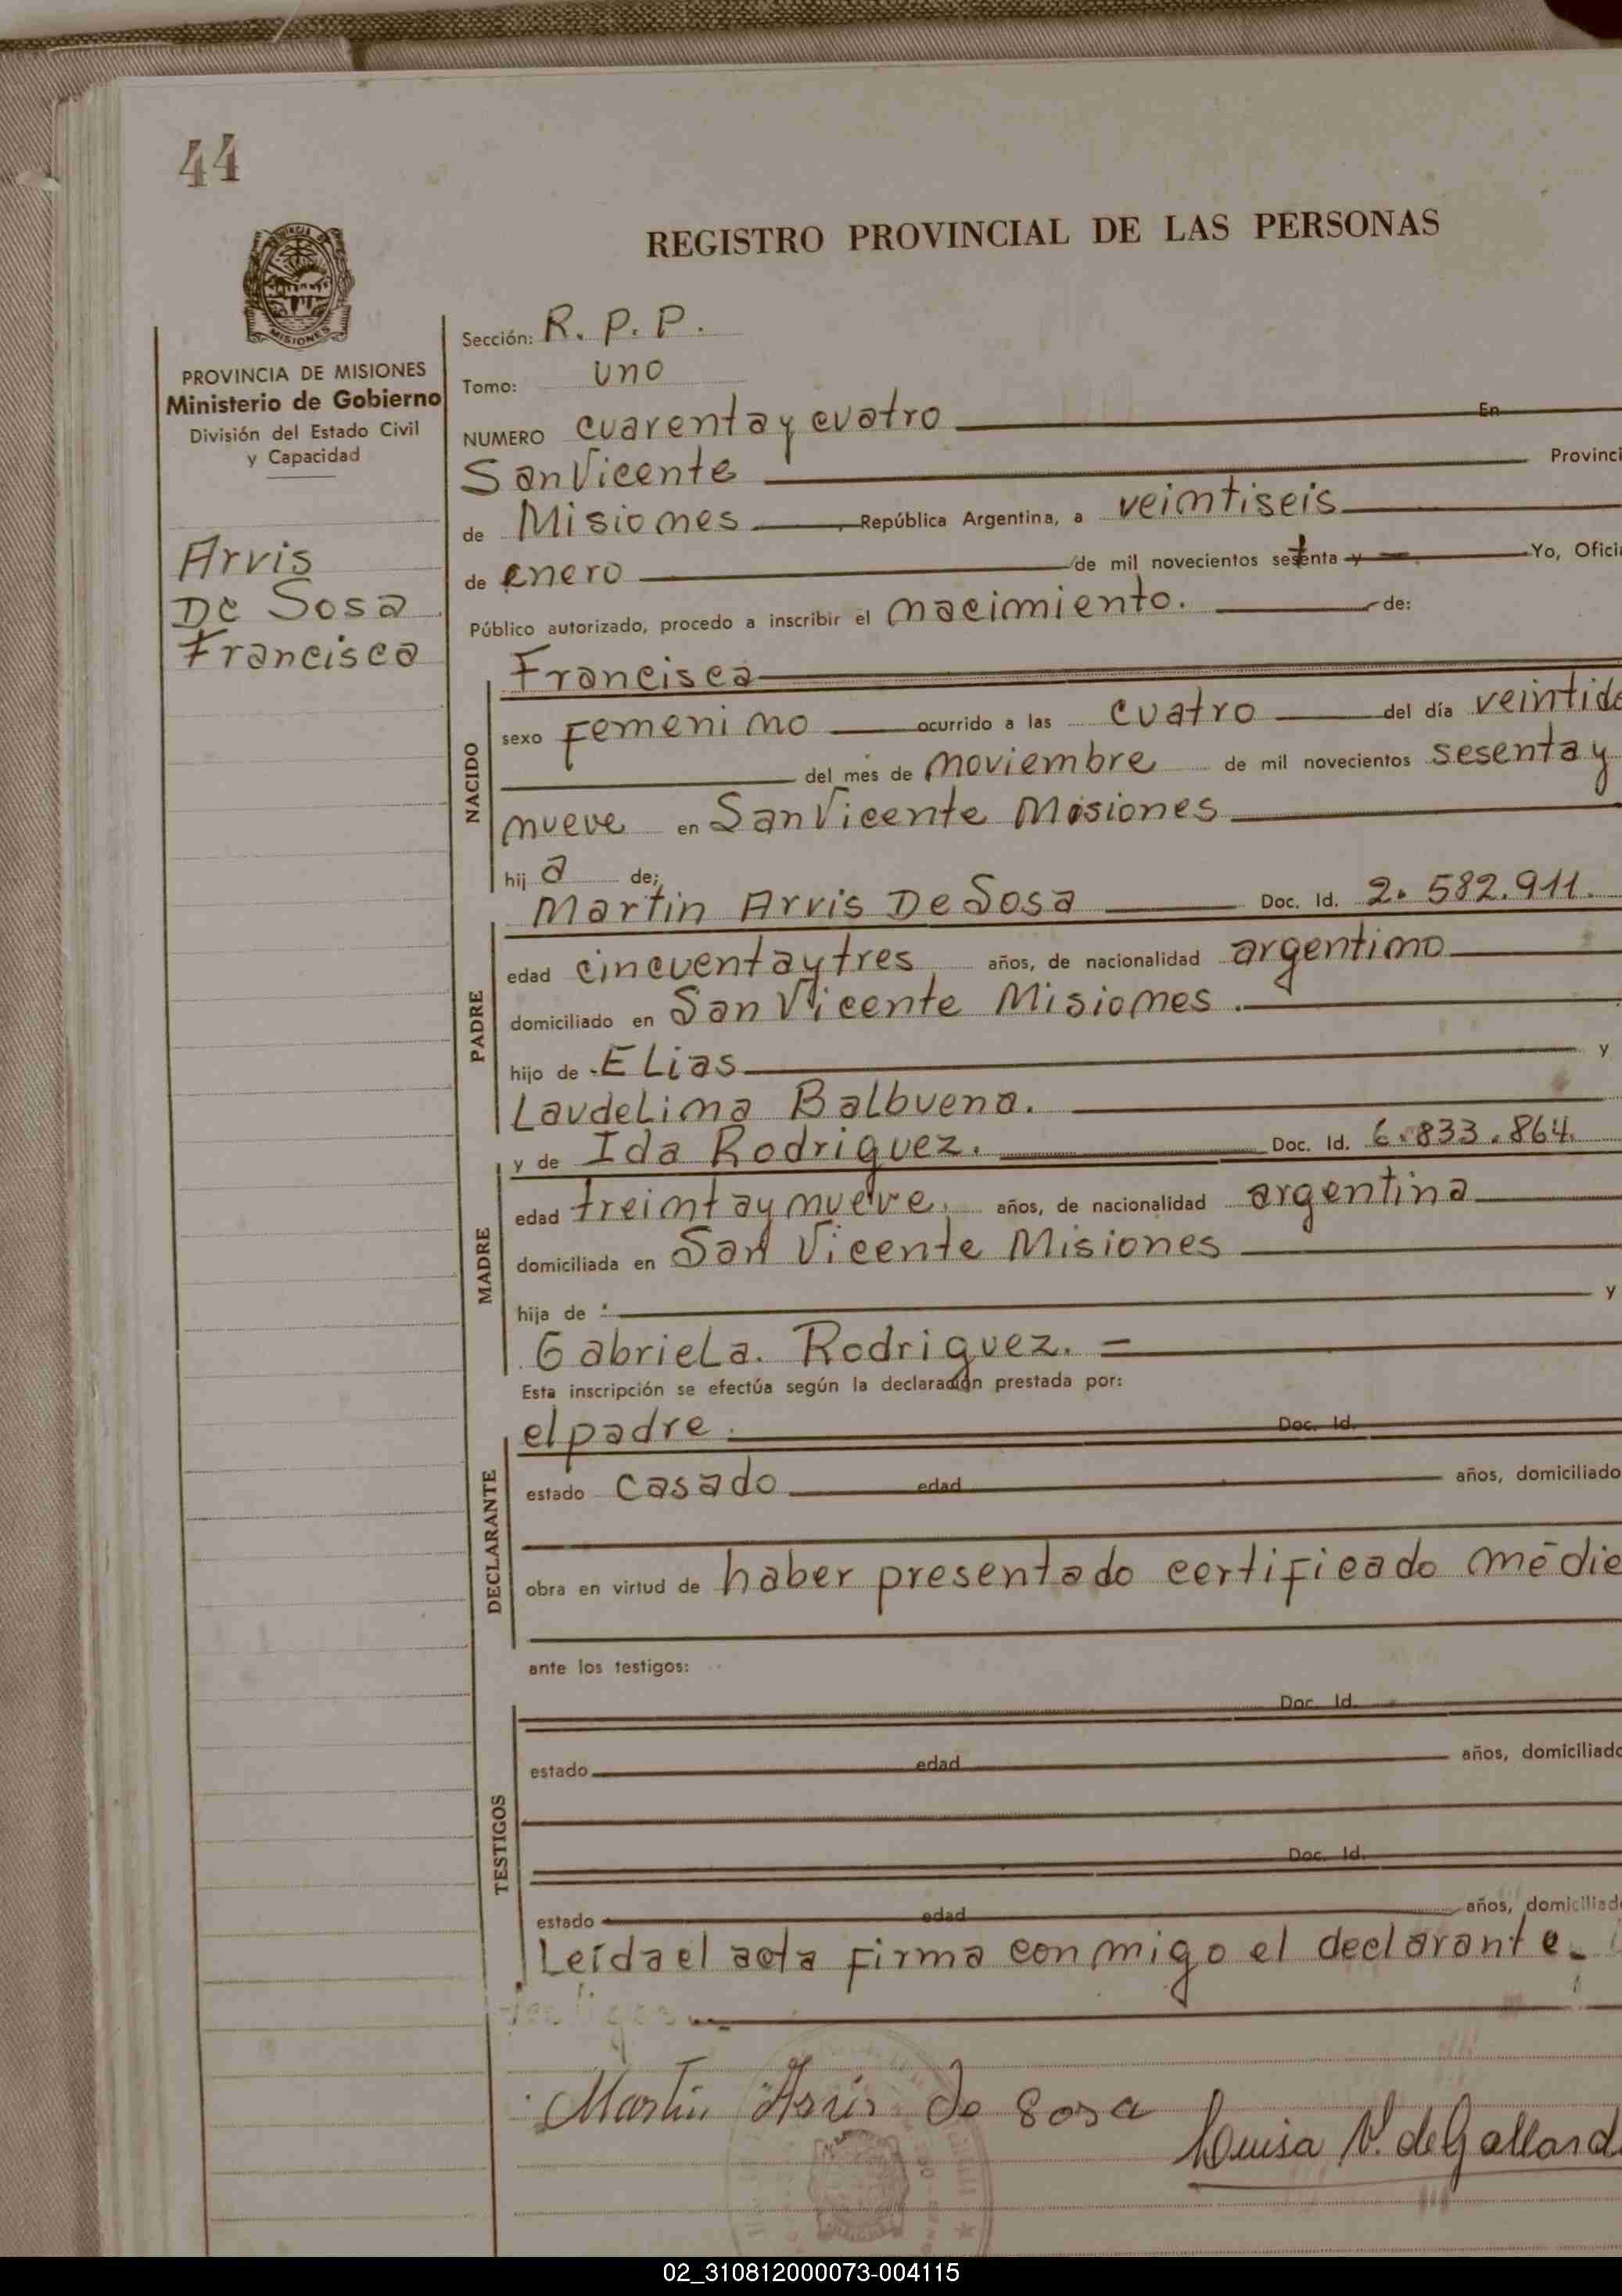 44
REGISTRO PROVINCIAL DE LAS PERSONAS
MISIONES
PROVINCIA DE MISIONES
Ministerio de Gobierno
División del Estado Civil
y Capacidad
Arvis
De Sosa
Francisca
Sección: R. P. P.
Tomo: uno
NUMERO cuarenta y cuatro En
San Vicente Provinci
de Misiones República Argentina, a veintiseis
de enero de mil novecientos setenta y Yo, Ofici
Público autorizado, procedo a inscribir el nacimiento. de:
NACIDO
Francisca
sexo Femenino ocurrido a las cuatro del día veintido
del mes de noviembre de mil novecientos sesenta y
nueve en San Vicente Misiones
hij a de;
PADRE
Martin Arvis De Sosa Doc. Id. 2.582.911.
edad cincuenta y tres años, de nacionalidad argentino
domiciliado en San Vicente Misiones.
hijo de Elias y
Laudelina Balbuena.
MADRE
y de Ida Rodriguez. Doc. Id. 6.833.864.
edad treinta y nueve. años, de nacionalidad argentina
domiciliada en San Vicente Misiones
hija de y
Gabriela. Rodriguez. =
Esta inscripción se efectúa según la declaración prestada por:
DECLARANTE
el padre. Doc. Id.
estado casado edad años, domiciliado
obra en virtud de haber presentado certificado médic
ante los testigos:
TESTIGOS
Doc. Id.
estado edad años, domiciliado
Doc. Id.
estado edad años, domiciliad
Leída el acta firma conmigo el declarante.
Martin Arvis De Sosa
Luisa V. de Gallard
02_310812000073-004115